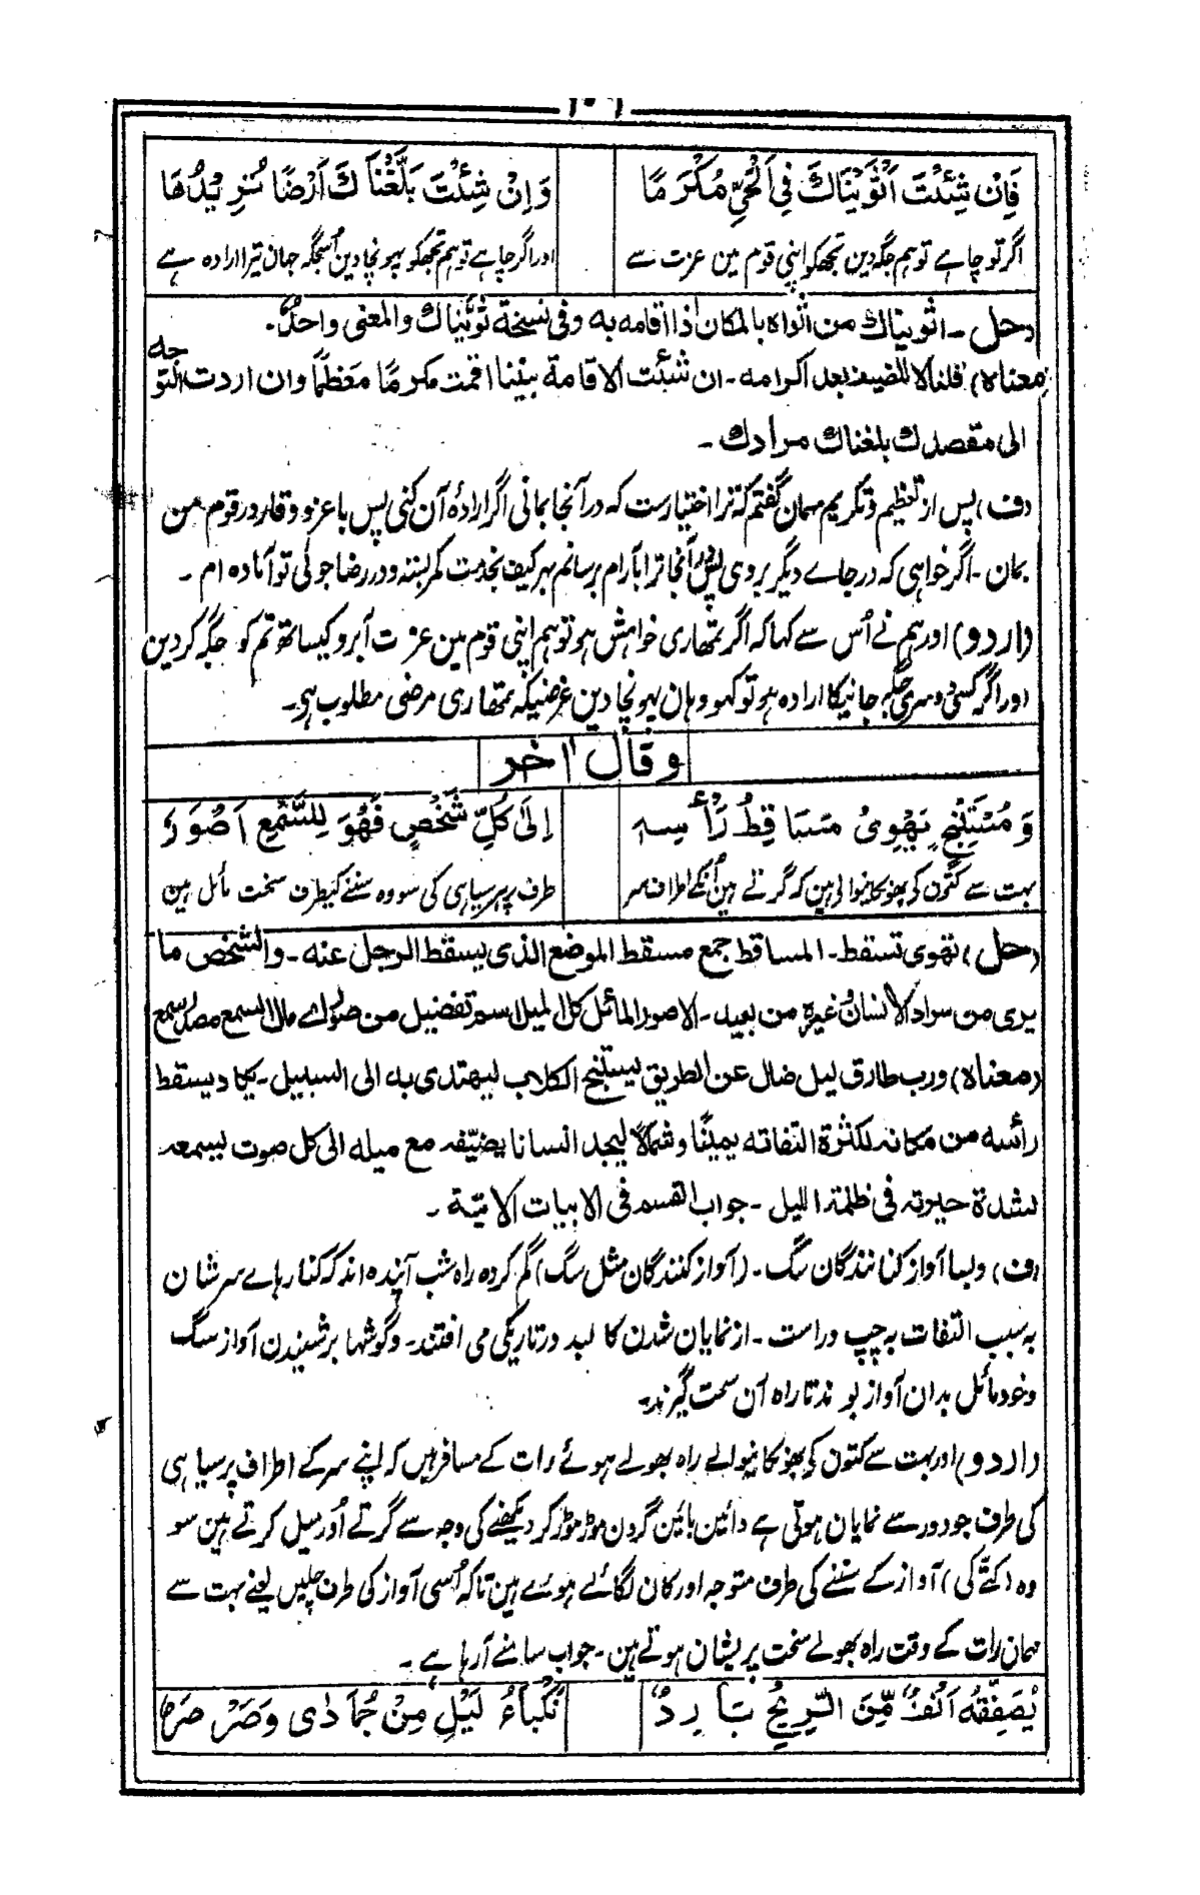 ۱۰۶
فَاِنْ شِئْتَ اَثْوَيْنَاكَ فِي الْحَيِّ مُكْرَمًا وَاِنْ شِئْتَ بَلَّغْنَا كَ اَرْضًا نُرِيْدُهَا
اگر تو چاہے تو ہم جگہ دین تجھکو اپنی قوم مین عزت سے اور اگر چاہے تو ہم تجھکو پہونچا دین اُسجگہ جہان تیرا ارادہ ہے
(حل ۔ اثويناك من اثواه بالمكان اذا اقامه به وفى نسخة ثوّيناك والمعنى واحدٌ۔
(معناه) قلنالا للضيف بعد اكرامه ۔ ان شئت الاقامة بيننا اقمت مكرمًا معظمًا وان اردت التوجه
الى مقصدك بلغناك مرادك ۔
(ف) پس از تعظیم و تکریم مہمان گفتم کہ ترا اختیارست کہ در آنجا بمانی اگر ارادۂ آن کنی پس با عز و وقار در قوم من
بمان ۔ اگر خواہی کہ در جاے دیگر بروی آنجا ترا بآرام برسانم بہر کیف بخدمت کمر بستہ و در رضا جوئی تو آمادہ ام ۔
(اردو) اور ہم نے اُس سے کہا کہ اگر تمھاری خواہش ہو تو ہم اپنی قوم مین عزت آبرو کیساتھ تم کو جگہ کر دین
اور اگر کسی دوسری جگہ جانیکا ارادہ ہو تو کہو وہان پہونچا دین غرضیکہ تمھاری مرضی مطلوب ہی۔
وقال اٰخر
وَ مُسْتَنْبِحٍ يَهْوِيْ مَسَاقِطُ رَأْسِهِ اِلٰى كُلِّ شَخْصٍ فَهُوَ لِلسَّمْعِ اَصْوَرُ
بہت سے کتون کو بھونکانیوالے ہین کہ گرتے ہین اُنکے اطراف سر طرف پر ہر سیاہی کی سو وہ سننے کیطرف سخت مائل ہین
(حل) تهوى تسقط ۔ المساقط جمع مسقط الموضع الذى يسقط الرجل عنه ۔ والشخص ما
يرى من سواد الانسان وغيره من بعيد ۔ الاصور المائل كل الميل اسم تفضيل من مال السمع مصدر سمع
(معناه) ورب طارق ليل ضال عن الطريق يستنبح الكلاب ليهتدى به الى السبيل ۔ يكاد يسقط
رأسه من مكانه لكثرة التفاته يمينًا وشمالًا ليجد انسانا يضيّفه مع ميله الى كل صوت يسمعه
لشدة حيرته فى ظلمة الليل ۔ جواب القسم فى الابيات الاتية ۔
(ف) و بسا آواز کنانندگان سگ ۔ (آواز کنندگان مثل سگ) گم کردہ راہ شب آیندہ اند کہ کنارہاے سر شان
بہ سبب التفات بہ چپ و راست ۔ از نمایان شدن کالبد در تاریکی می افتند ۔ و گوشہا بر شنیدن آواز سگ
وخود مائل بدان آواز بوند تا راہ آن سمت گیرند۔
(اردو) اور بہت سے کتون کو بھونکانیوالے راہ بھولے ہوئے رات کے مسافر ہین کہ اپنے سر کے اطراف پر سیاہی
کی طرف جو دور سے نمایان ہوتی ہے دائین بائین گردن موڑ موڑ کر دیکھنے کی وجہ سے گرتے اور میل کرتے ہین سو
وہ (کتے کی) آواز کے سننے کی طرف متوجہ اور کان لگائے ہوئے ہین تاکہ اُسی آواز کی طرف چلین یعنے بہت سے
مہمان رات کے وقت راہ بھولے سخت پریشان ہوتے ہین ۔ جواب سامنے آرہا ہے ۔
يُصَفِّقُهُ اَنْفٌ مِّنَ الرِّيْحِ بَارِدٌ نَكْبَاءُ لَيْلٍ مِنْ جُمَادٰى وَصَرْصَرُ